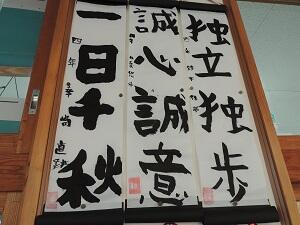 独立独歩
誠心誠意
一日千秋
四年